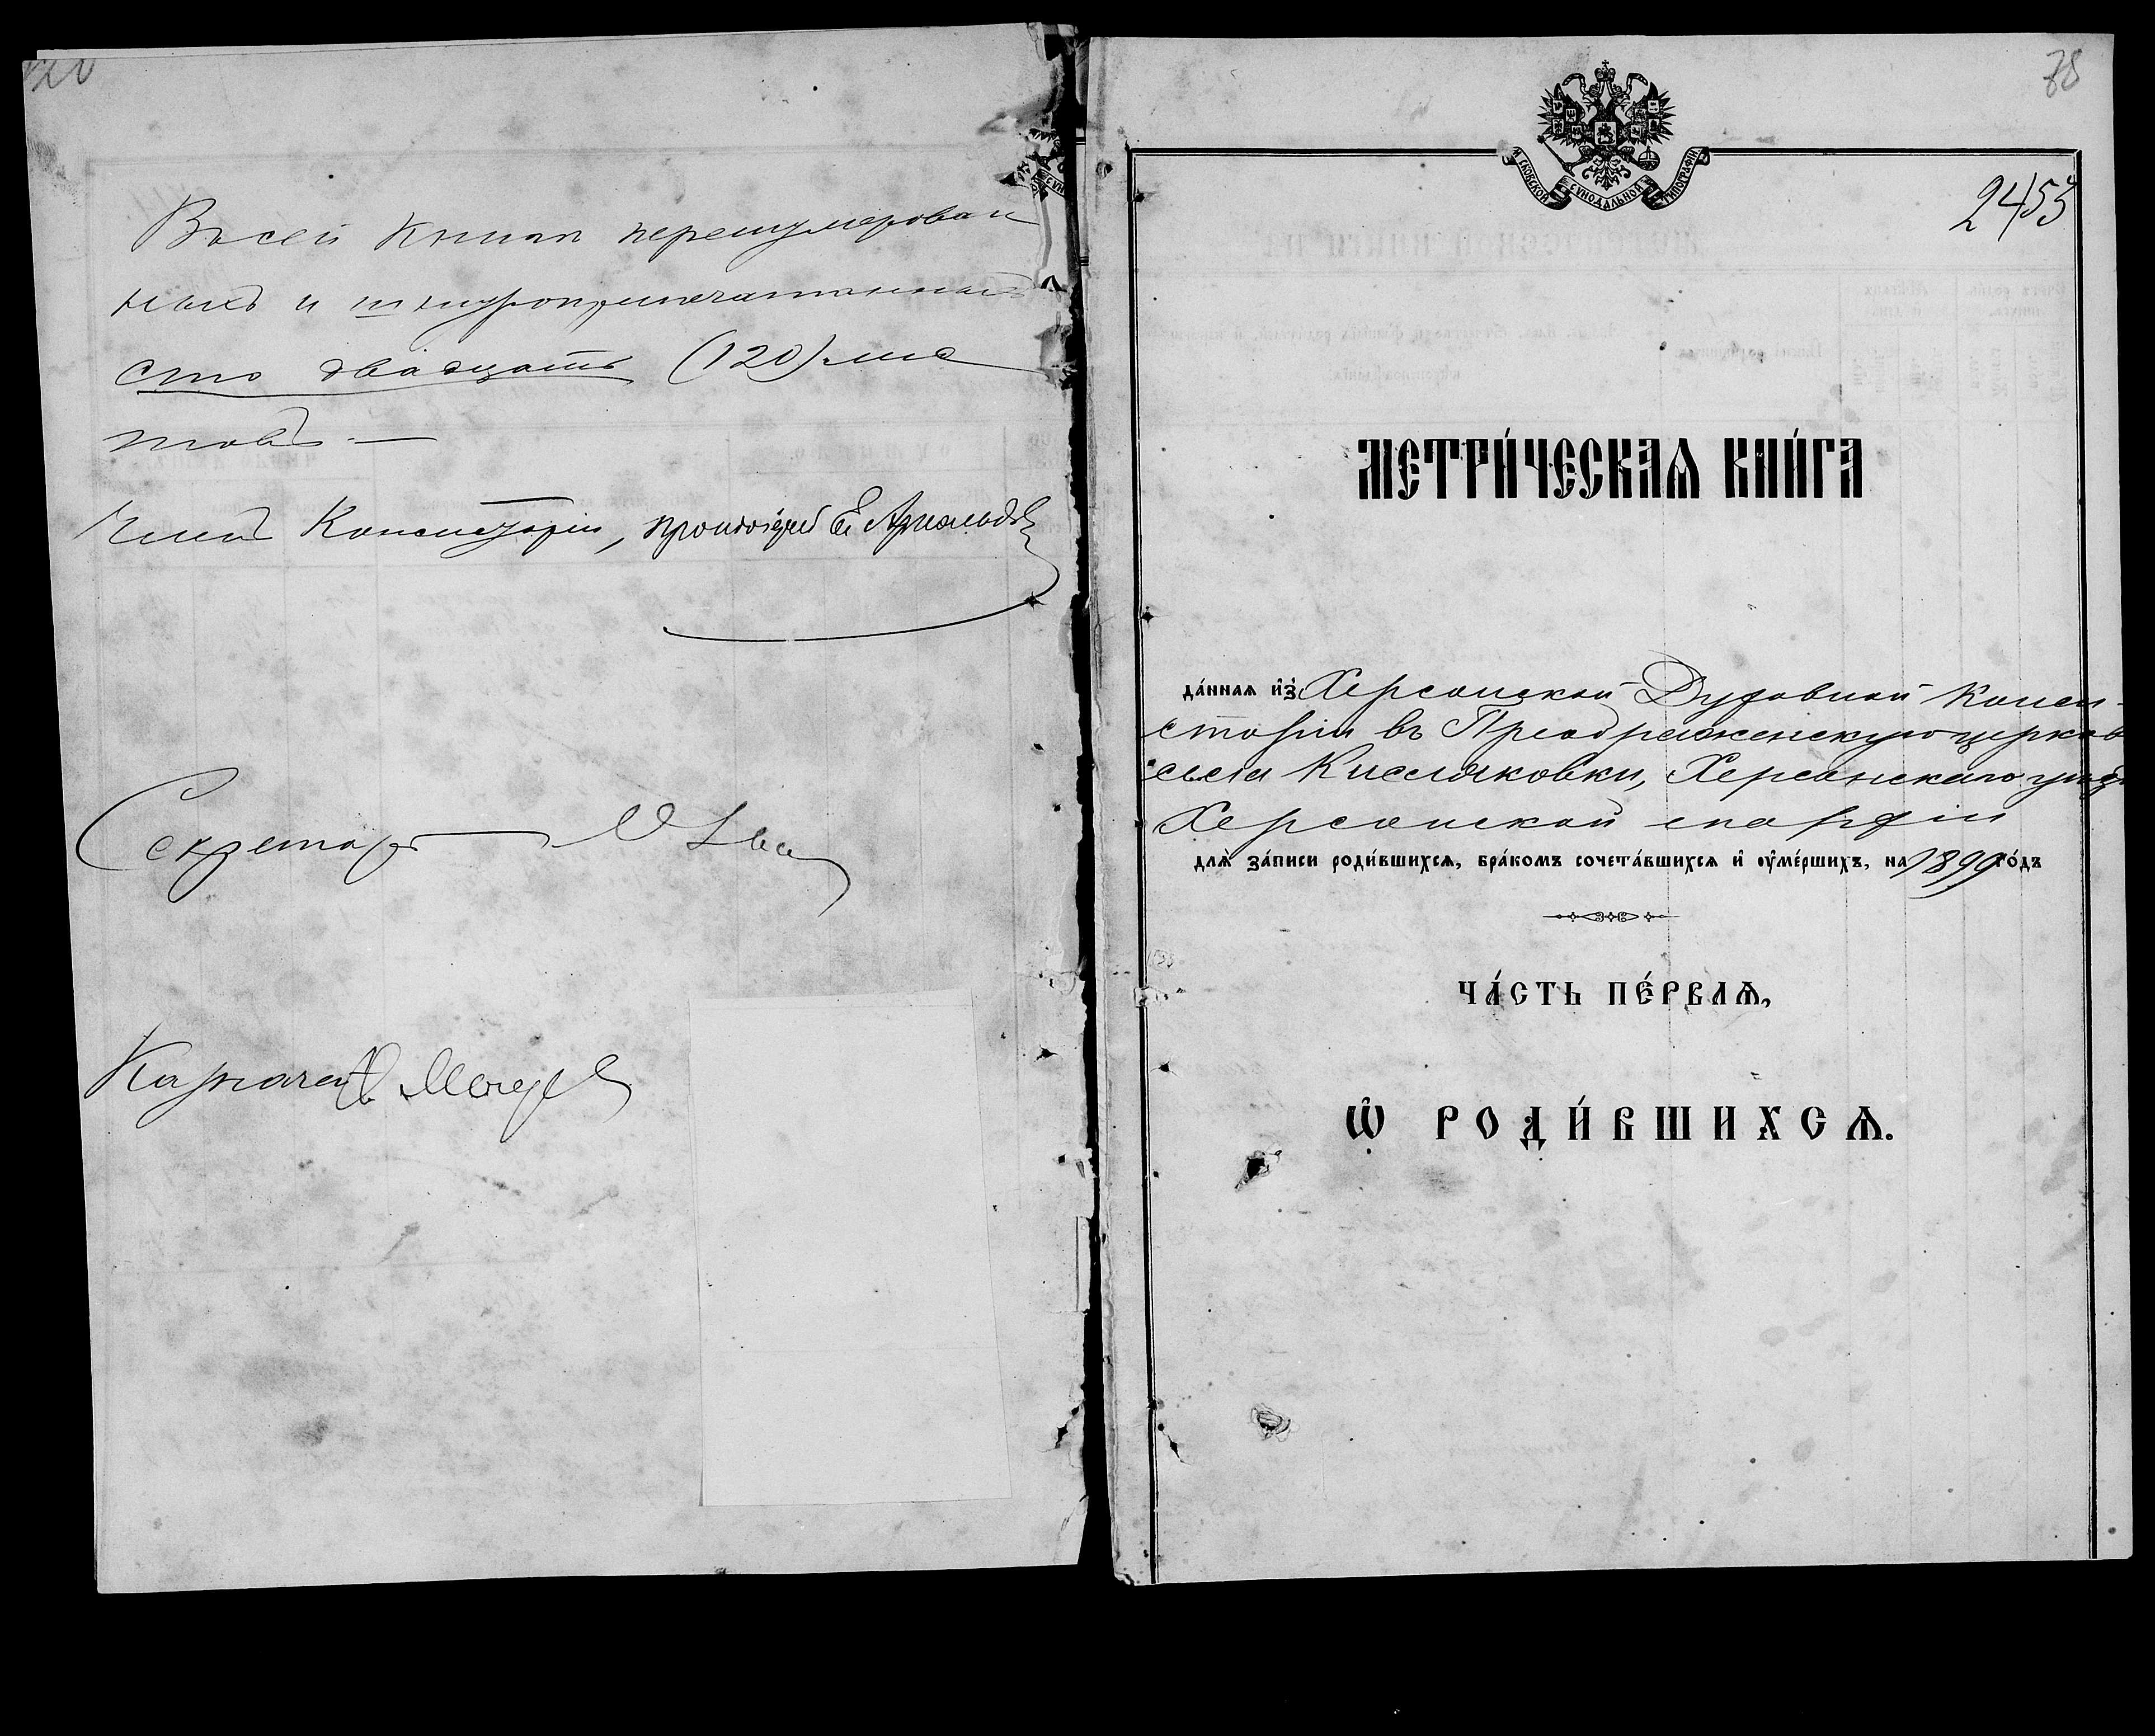 120
Въ сей книгѣ перенумерован
ныхъ и шнуроприпечатанныхъ
сто двадцать (120) лис
товъ. —
Членъ Консисторіи, протоіерей
Секретарь
Казначей
78
МОСКОВСКОЙ СѴНОДАЛЬНОЙ ТИПОГРАФІИ
2453
МЕТРИ́ЧЕСКАѦ КНИ́ГА
да́ннаѧ и҆з̾ Херсонской ДуховнойКонси-
сторіи въ Преображенскую церковь
села Кисляковки, Херсонскаго уѣзда
Херсонской епархіи
длѧ̀ за́писи роди́вшихсѧ, бра́комъ сочета́вшихсѧ и҆ ᲂу҆ме́ршихъ, на 1899 го́дъ
ЧА́СТЬ ПЕ́РВАѦ,
Ѡ҆ РОДИ́ВШИХСѦ.